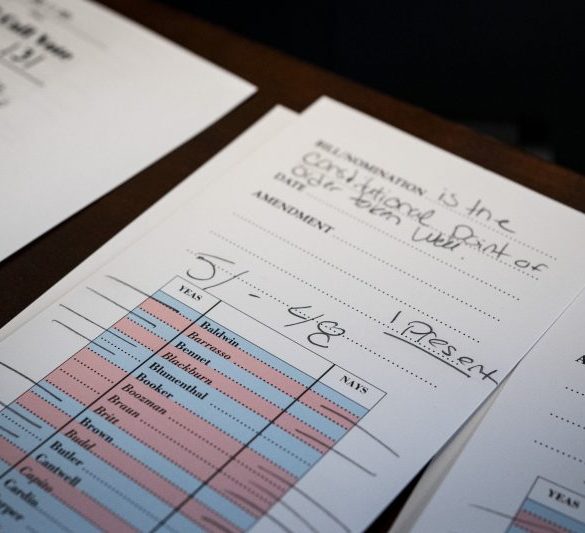 Call Vote
131
BILL/NOMINATION is the
Constitutional Point of
Order taken well.
DATE
AMENDMENT
51 - 48 1 Present
YEAS NAYS
Baldwin
Barrasso
Bennet
Blackburn
Blumenthal
Booker
Boozman
Braun
Britt
Brown
Budd
Butler
Cantwell
Capito
Cardin
YEAS